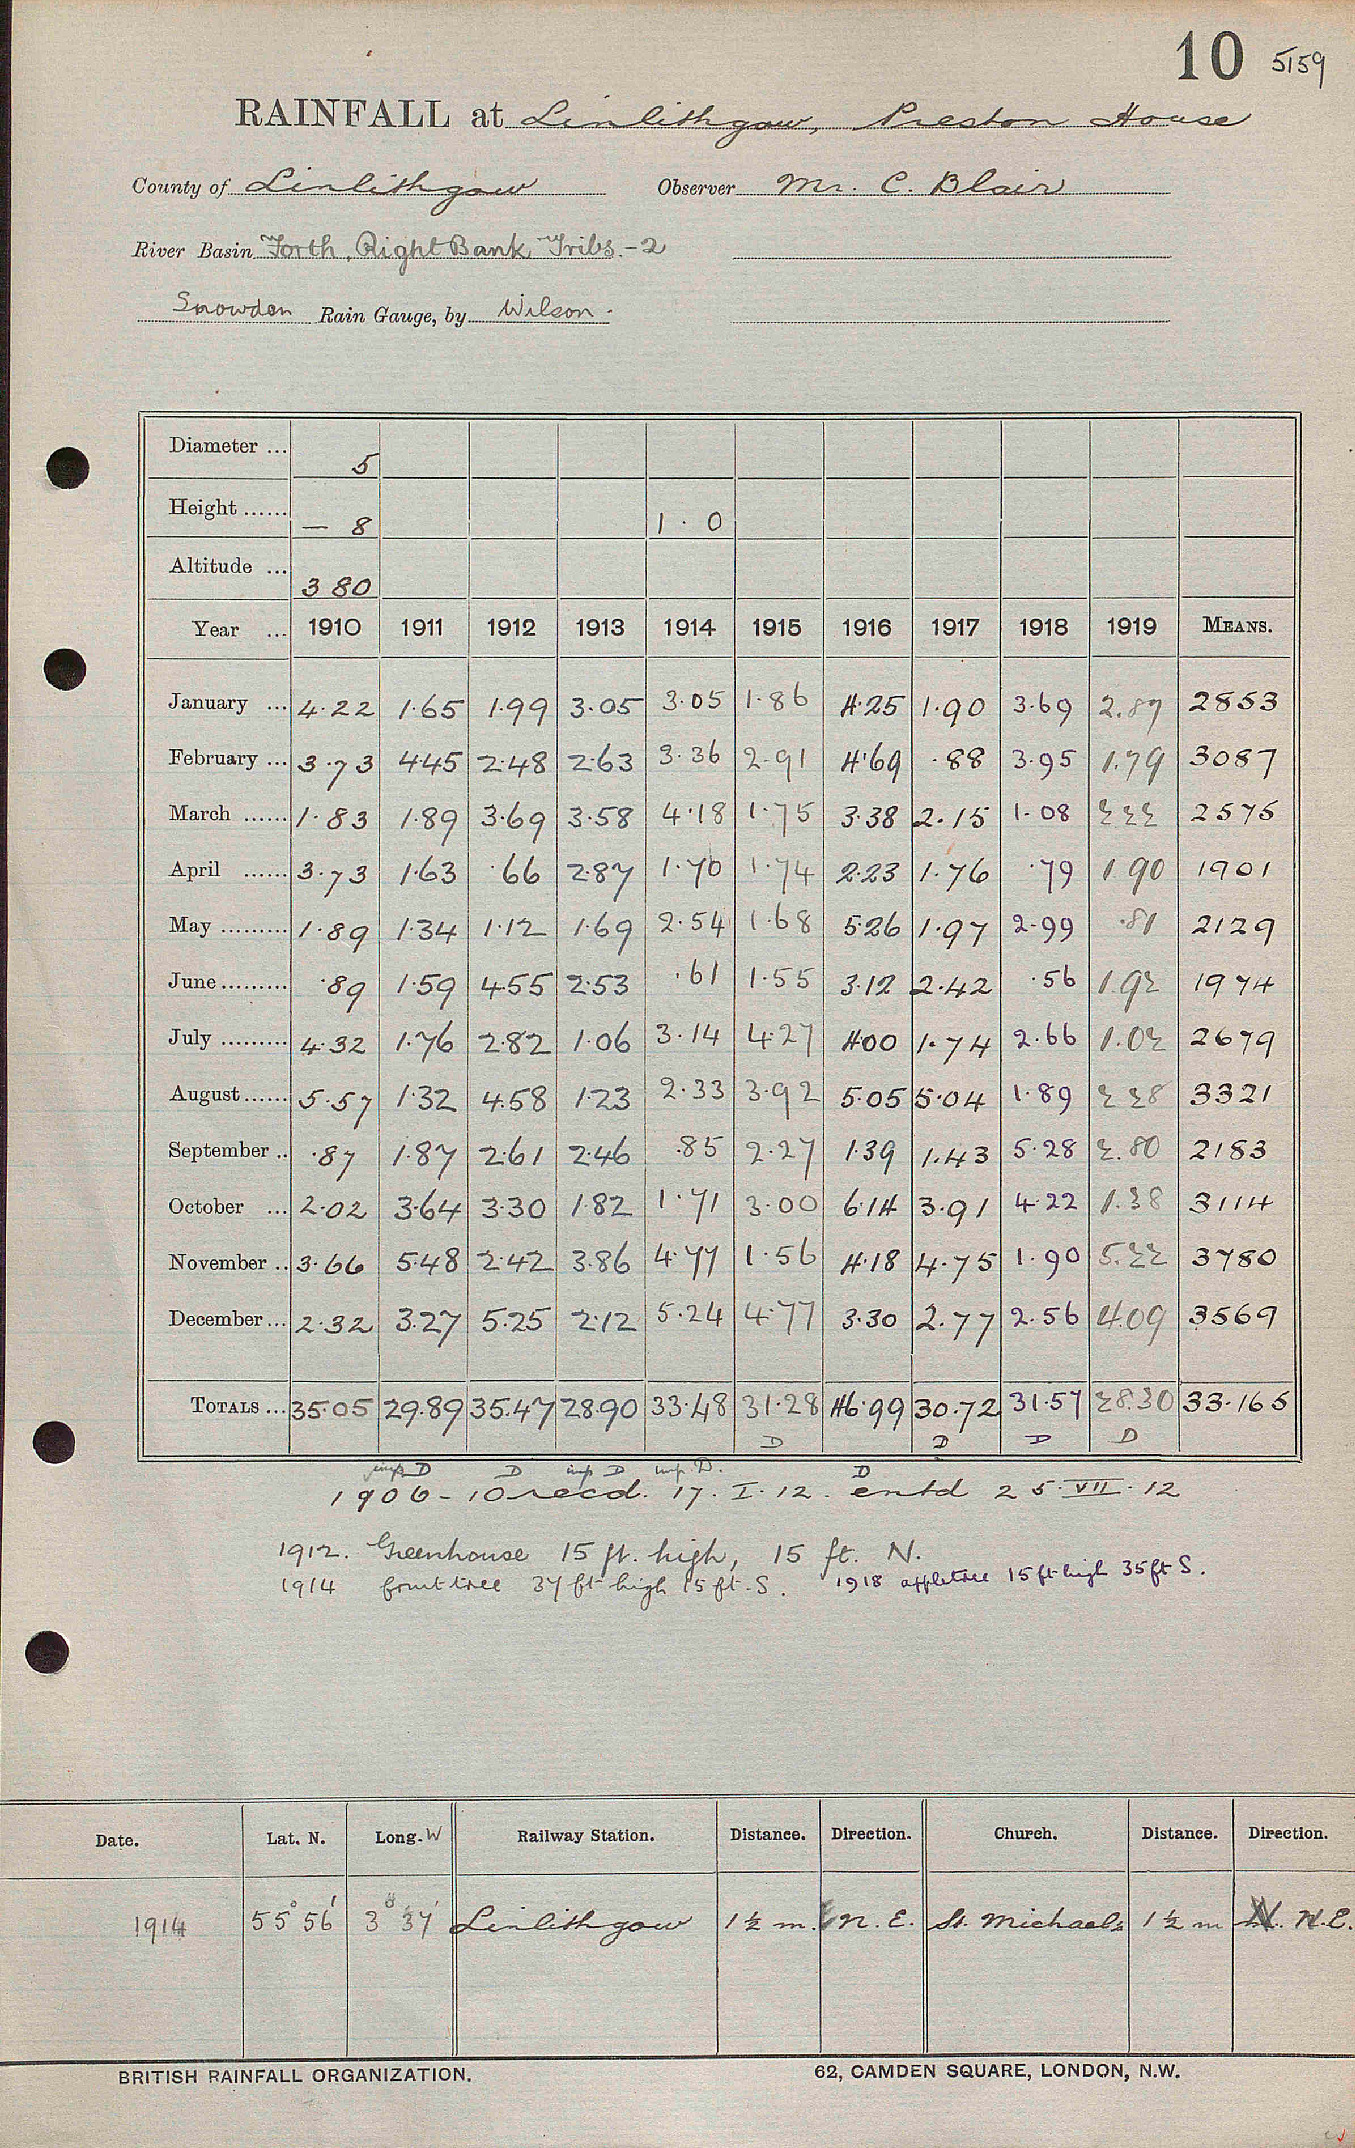 10 5159
RAINFALL at Linlithgow, Preston House
County of Linlithgow Observer Mr. C. Blair
River Basin Forth, Right Bank Tribs.-2
Snowdon Rain Gauge, by Wilson.
Diameter ... 5
Height ...... — 8 1 · 0
Altitude ... 380
Year ... 1910 1911 1912 1913 1914 1915 1916 1917 1918 1919 MEANS.
January ... 4·22 1·65 1·99 3·05 3·05 1·86 4·25 1·90 3·69 2.87 2853
February ... 3·73 445 2·48 263 3·36 2·91 4·69 ·88 3·95 1.79 3087
March ...... 1·83 1·89 3·69 3·58 4·18 1·75 3·38 2·15 1·08 222 2575
April ...... 3·73 1·63 ·66 2·87 1·70 1·74 2·23 1·76 ·79 1.90 1901
May ......... 1·89 1·34 1·12 1·69 2·54 1·68 526 1·97 2·99 ·81 2129
June ......... ·89 1·59 455 2·53 ·61 1·55 3·12 2·42 ·56 1.92 1974
July ......... 4·32 1·76 2·82 1·06 3·14 4·27 400 1·74 2·66 1.02 2679
August ...... 5·57 1·32 4·58 1·23 2·33 3·92 5·05 5·04 1·89 2 28 3321
September .. ·87 1·87 2·61 2·46 ·85 2·27 1·39 1·43 5·28 2.80 2183
October ... 2·02 3·64 3·30 1·82 1·71 3·00 6·14 3·91 4·22 1.38 3114
November .. 3·66 5·48 2·42 3·86 4·77 1·56 4·18 4·75 1·90 5.22 3780
December ... 2·32 3·27 5·25 2·12 5·24 4·77 3·30 2·77 2·56 4.09 3569
TOTALS ... 35·05 29·89 35·47 28·90 33·48 31·28 46·99 30·72 31·57 28.30 33·165
D D D D
imp D D imp D imp. D. D
1906-10 recd. 17. I. 12. entd 25. VII. 12
1912. Greenhouse 15 ft. high, 15 ft. N.
1914 fruit tree 37 ft high 15 ft. S. 1918 appletree 15 ft high 35 ft S.
Date. Lat. N. Long. W Railway Station. Distance. Direction. Church. Distance. Direction.
1914 55° 56' 3° 37' Linlithgow 1½ m. N. E. St. Michaels 1½ m N.E.
BRITISH RAINFALL ORGANIZATION. 62, CAMDEN SQUARE, LONDON, N.W.